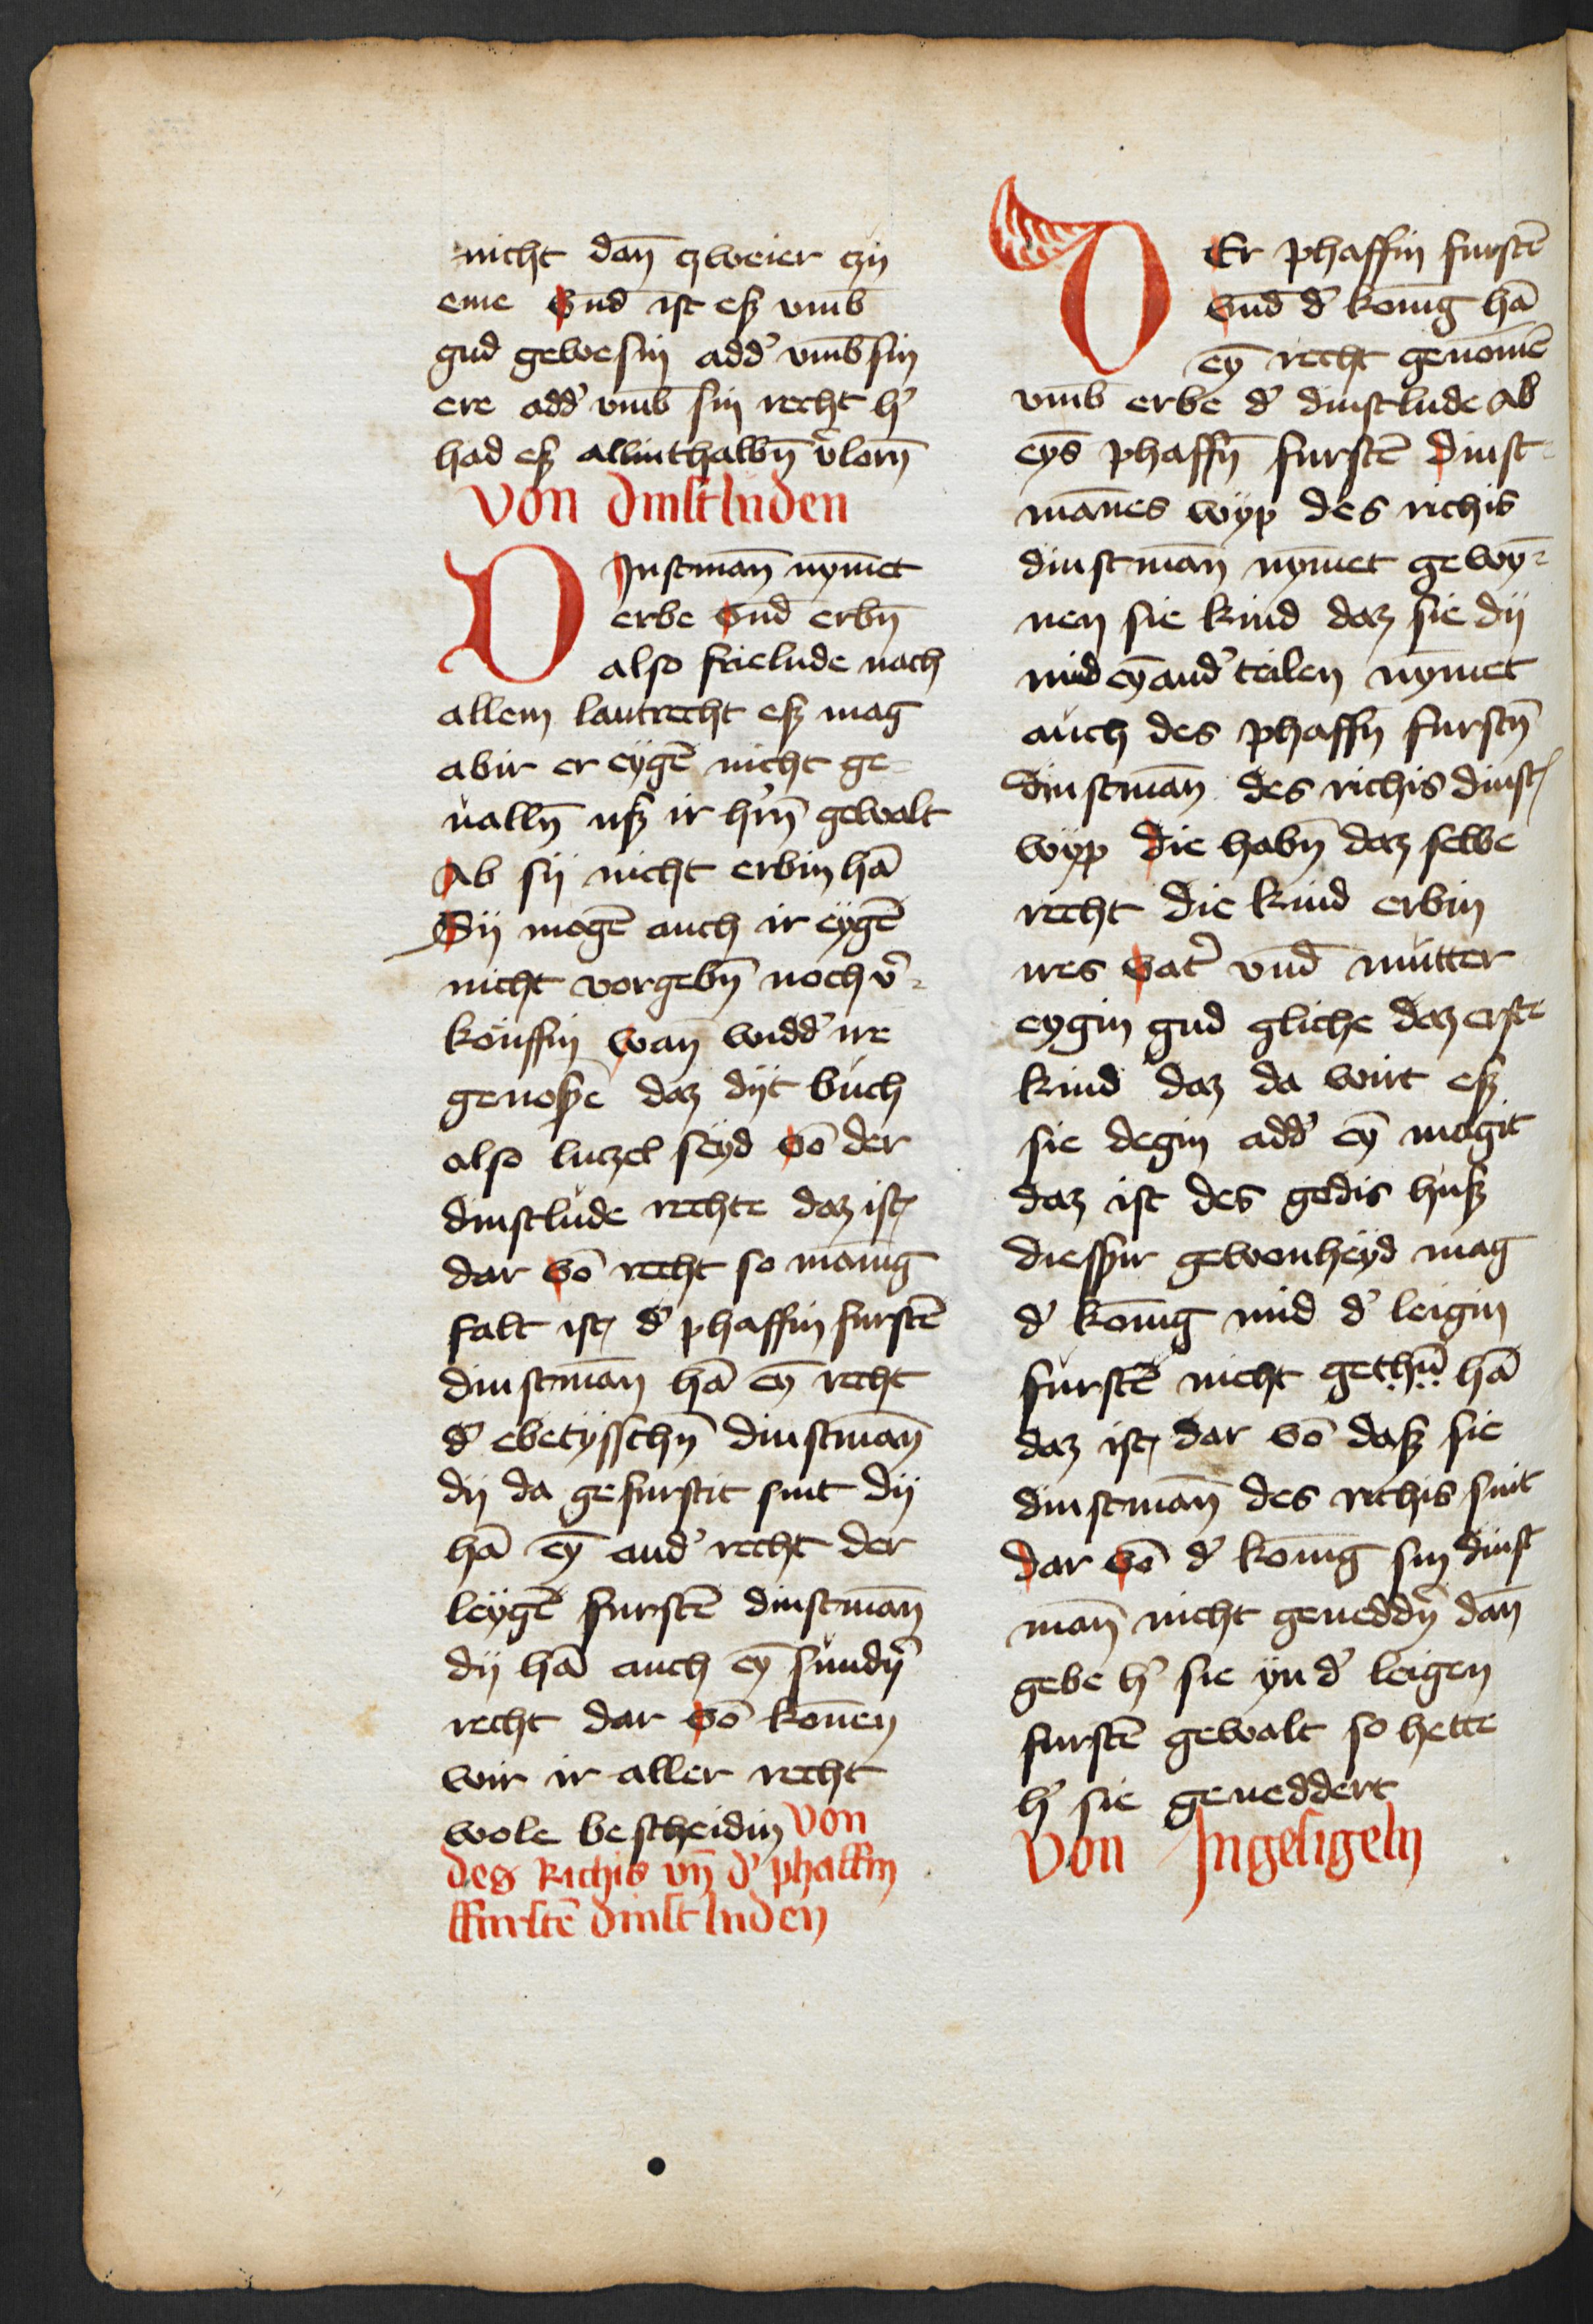 nicht dañ czweier czu
eme vnd̄ ist eß vm̄b
gud gewesin add' vm̄b sin
ere add' vm̄b sin recht h'
had eß allinthalbn̄ v'lorn̄
Von dinstluden
DJnstman̄ nym̄et
erbe vnd̄ erbn̄
also frielude nach
allem lantrecht eß mag
abir er eygē nicht ge-
ualln̄ uß ir h'rn̄ gewalt
Ab sy nicht erbin hā
Sy mogē auch ir eygē
nicht vorgebn̄ noch v'-
kouffin wan̄ widd' ire
genoßē daz dyt buch
also luczel seyd vō der
dinstlude rechte daz ist
dar vō recht so man̄ig
falt ist d' phaffin furstē
dinstman̄ hā eȳ recht
d' ebetysschn̄ dinstman̄
dy da gefurstit sint dy
hā eȳ and' recht der
leygē furstē dinstman̄
dy hā auch eȳ sundy'
recht dar vō kōnen
wir ir aller recht
wole bescheidin Von
des Richis vn̄ d' phaffin
ffurstē dinstluden
DEr phaffin furstē
vnd̄ d' konig hā
eȳ recht genom̄ē
vm̄b erbe d' dinstlude Ab
eȳs phaffn̄ furstē dinst-
man̄es wyp des richis
dinstman̄ nym̄et gewȳ-
nen sie kind daz sie dy
mid eȳand' teilen nym̄et
auch des phaffn̄ furstn̄
dinstman̄ des richis dinst
wyp die habn̄ daz selbe
recht die kind erbin
ires vat' vnd̄ mutter
eygin gud gliche daz erste
kind daz da wirt eß
sie degin add' eȳ magit
daz ist des godis huß
diesßir gewonheyd mag
d' konig mid d' leigin
furstē nicht gethū hā
daz ist dar vō daß sie
dinstman̄ des richis sint
dar vō d' konig sin dinst
man̄ nicht geneddn̄ dan̄
gebe h' sie yn d' leigen
furstē gewalt so hette
h' sie geneddert
Von Jngesigeln